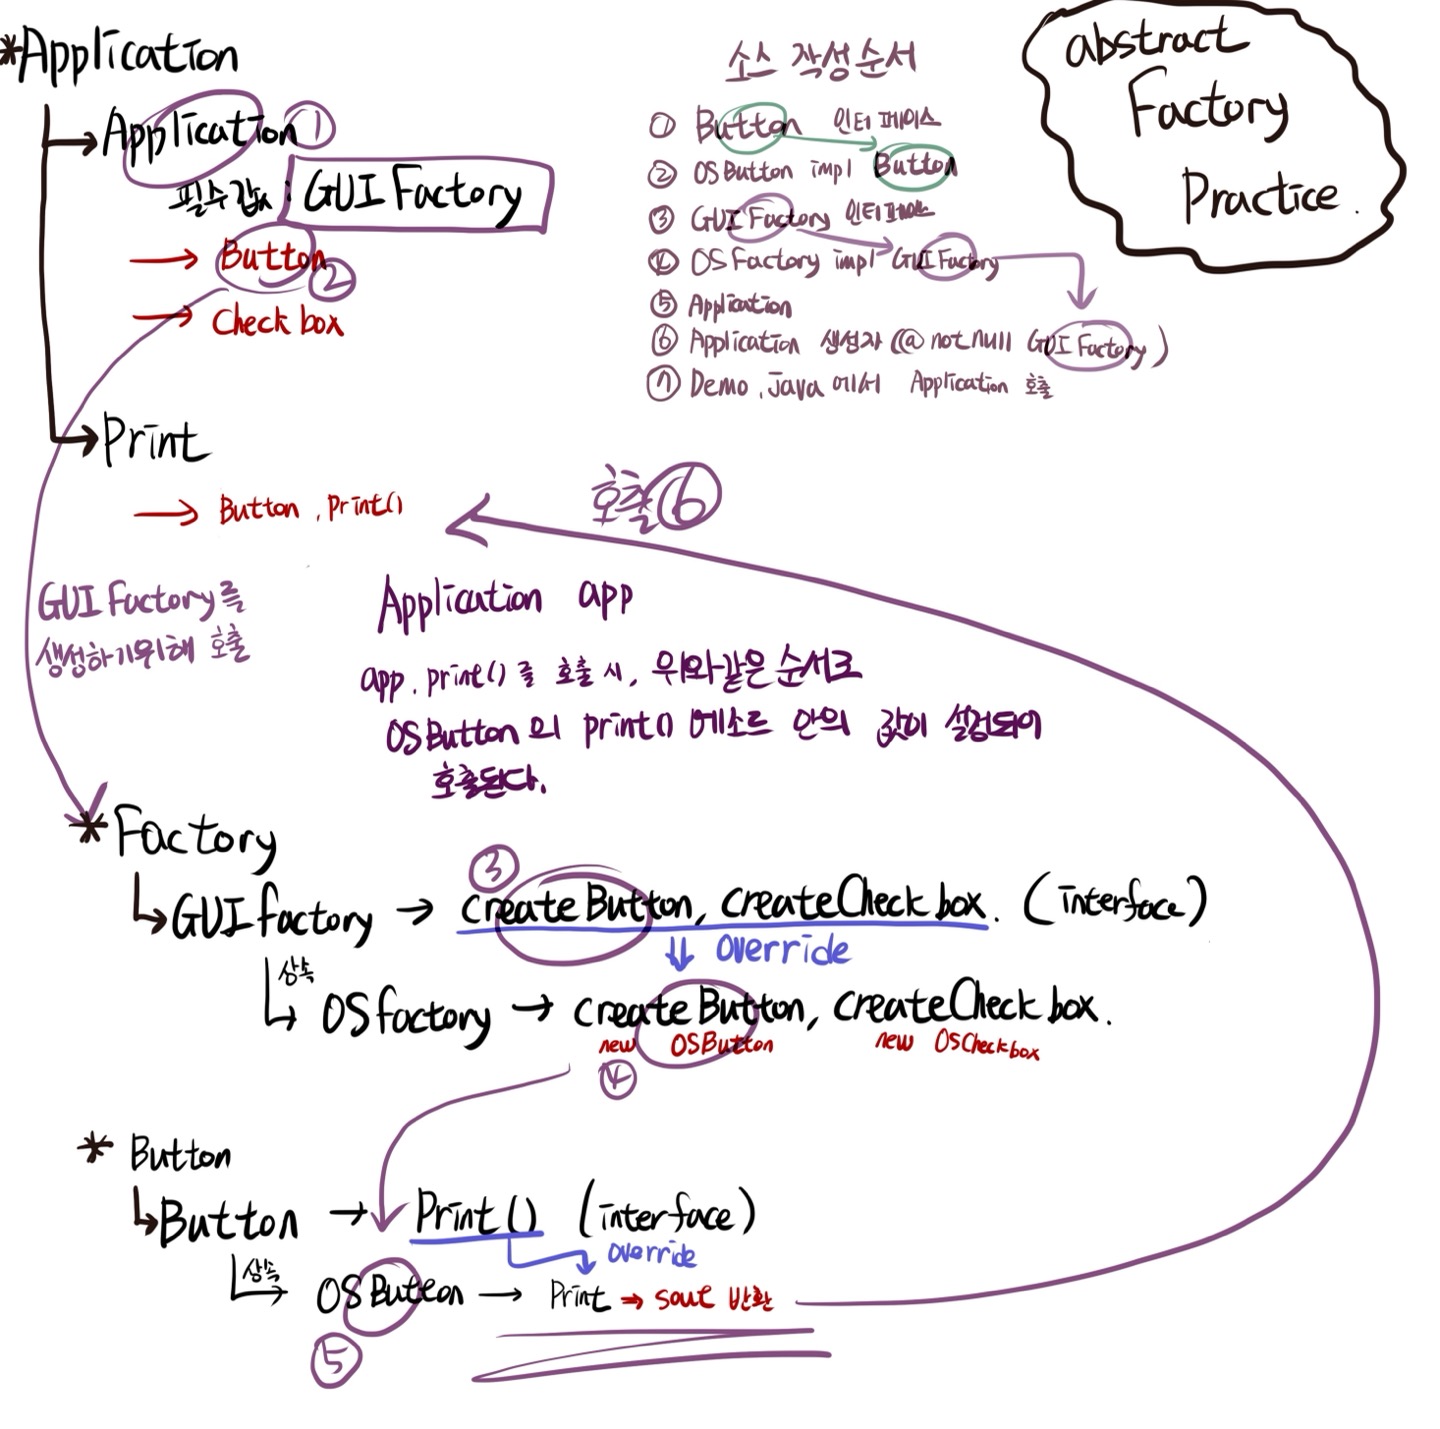 *Application
Application ①
필수값 : GUI Factory
→ Button ②
→ Check box
Print
→ Button . Print()
GUI Factory를
생성하기위해 호출
소스 작성순서
① Button 인터페이스
② OSButton impl Button
③ GUI Factory 인터페이스
④ OS Factory impl GUI Factory
⑤ Application
⑥ Application 생성자 (@ not null GUI Factory)
⑦ Demo.java 에서 Application 호출
abstract
Factory
Practice.
호출 ⑥
Application app
app.print() 를 호출 시, 위와같은 순서로
OSButton 의 print() 메소드 안의 값이 설정되어
호출된다.
* Factory
③
↳ GUI factory → createButton, createCheckbox. (interface)
⇓ override
상속
↳ OSfactory → createButton, createCheckbox.
new OSButton new OSCheckbox
④
* Button
↳ Button → Print() (interface)
override
상속
OSButton → Print → sout 반환
⑤